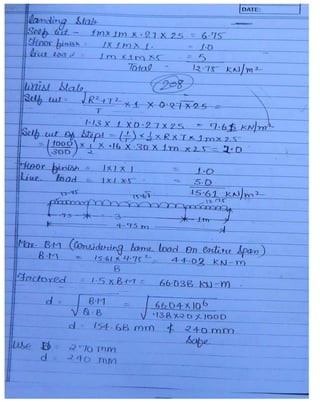 DATE:
Landing Slab
Self wt - 1m x 1m x .27 x 25 = 6.75
Floor finish = 1x 1m x 1. = 1.0
Live load = 1m x 1m x 5 = 5
Total = 12.75 KN/m²
208
Waist Slab
Self wt = √R²+T² / T x 1 x 0.27 x 25 =
1.13 x 1 x 0.27 x 25 = 7.61 KN/m²
Self wt of Step = (1/T) x ½ x R x T x 1m x 25
= (1000/300) x ½ x .16 x 30 x 1m x 25 = 2.0
Floor finish = 1x1x1 = 1.0
Live load = 1x1x5 = 5.0
15.61 KN/m²
12.75 15.61 12.75
.75 3 1m
4.75 m
Max. B.M (Considering Same load on entire Span)
B.M = 15.61 x 4.75² / 8 = 44.02 KN-m
Factored = 1.5 x B.M = 66.038 KN-m.
d = √B.M / Q.B = √66.04 x 10⁶ / .138 x 20 x 1000
d = 154.68 mm < 240 mm
Safe
Use D = 270 mm
d = 240 mm